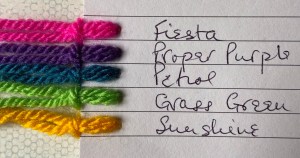 Fiesta
Proper Purple
Petrol
Grass Green
Sunshine